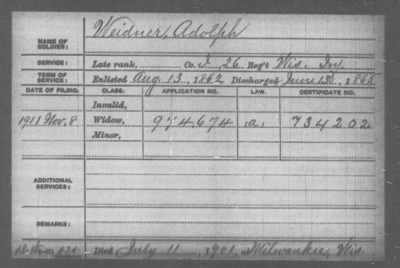 NAME OF SOLDIER: Weidner, Adolph
SERVICE: Late rank, Co. I, 26 Reg't Wis. Inf.
TERM OF SERVICE: Enlisted Aug. 13, 1862 Discharged June 13, 1865
DATE OF FILING. CLASS. APPLICATION NO. LAW. CERTIFICATE NO.
Invalid,
1911 Nov. 8 Widow, 974,674 a, 734202
Minor,
ADDITIONAL SERVICES:
REMARKS:
Died July 11, 1901, at Milwaukee, Wis.